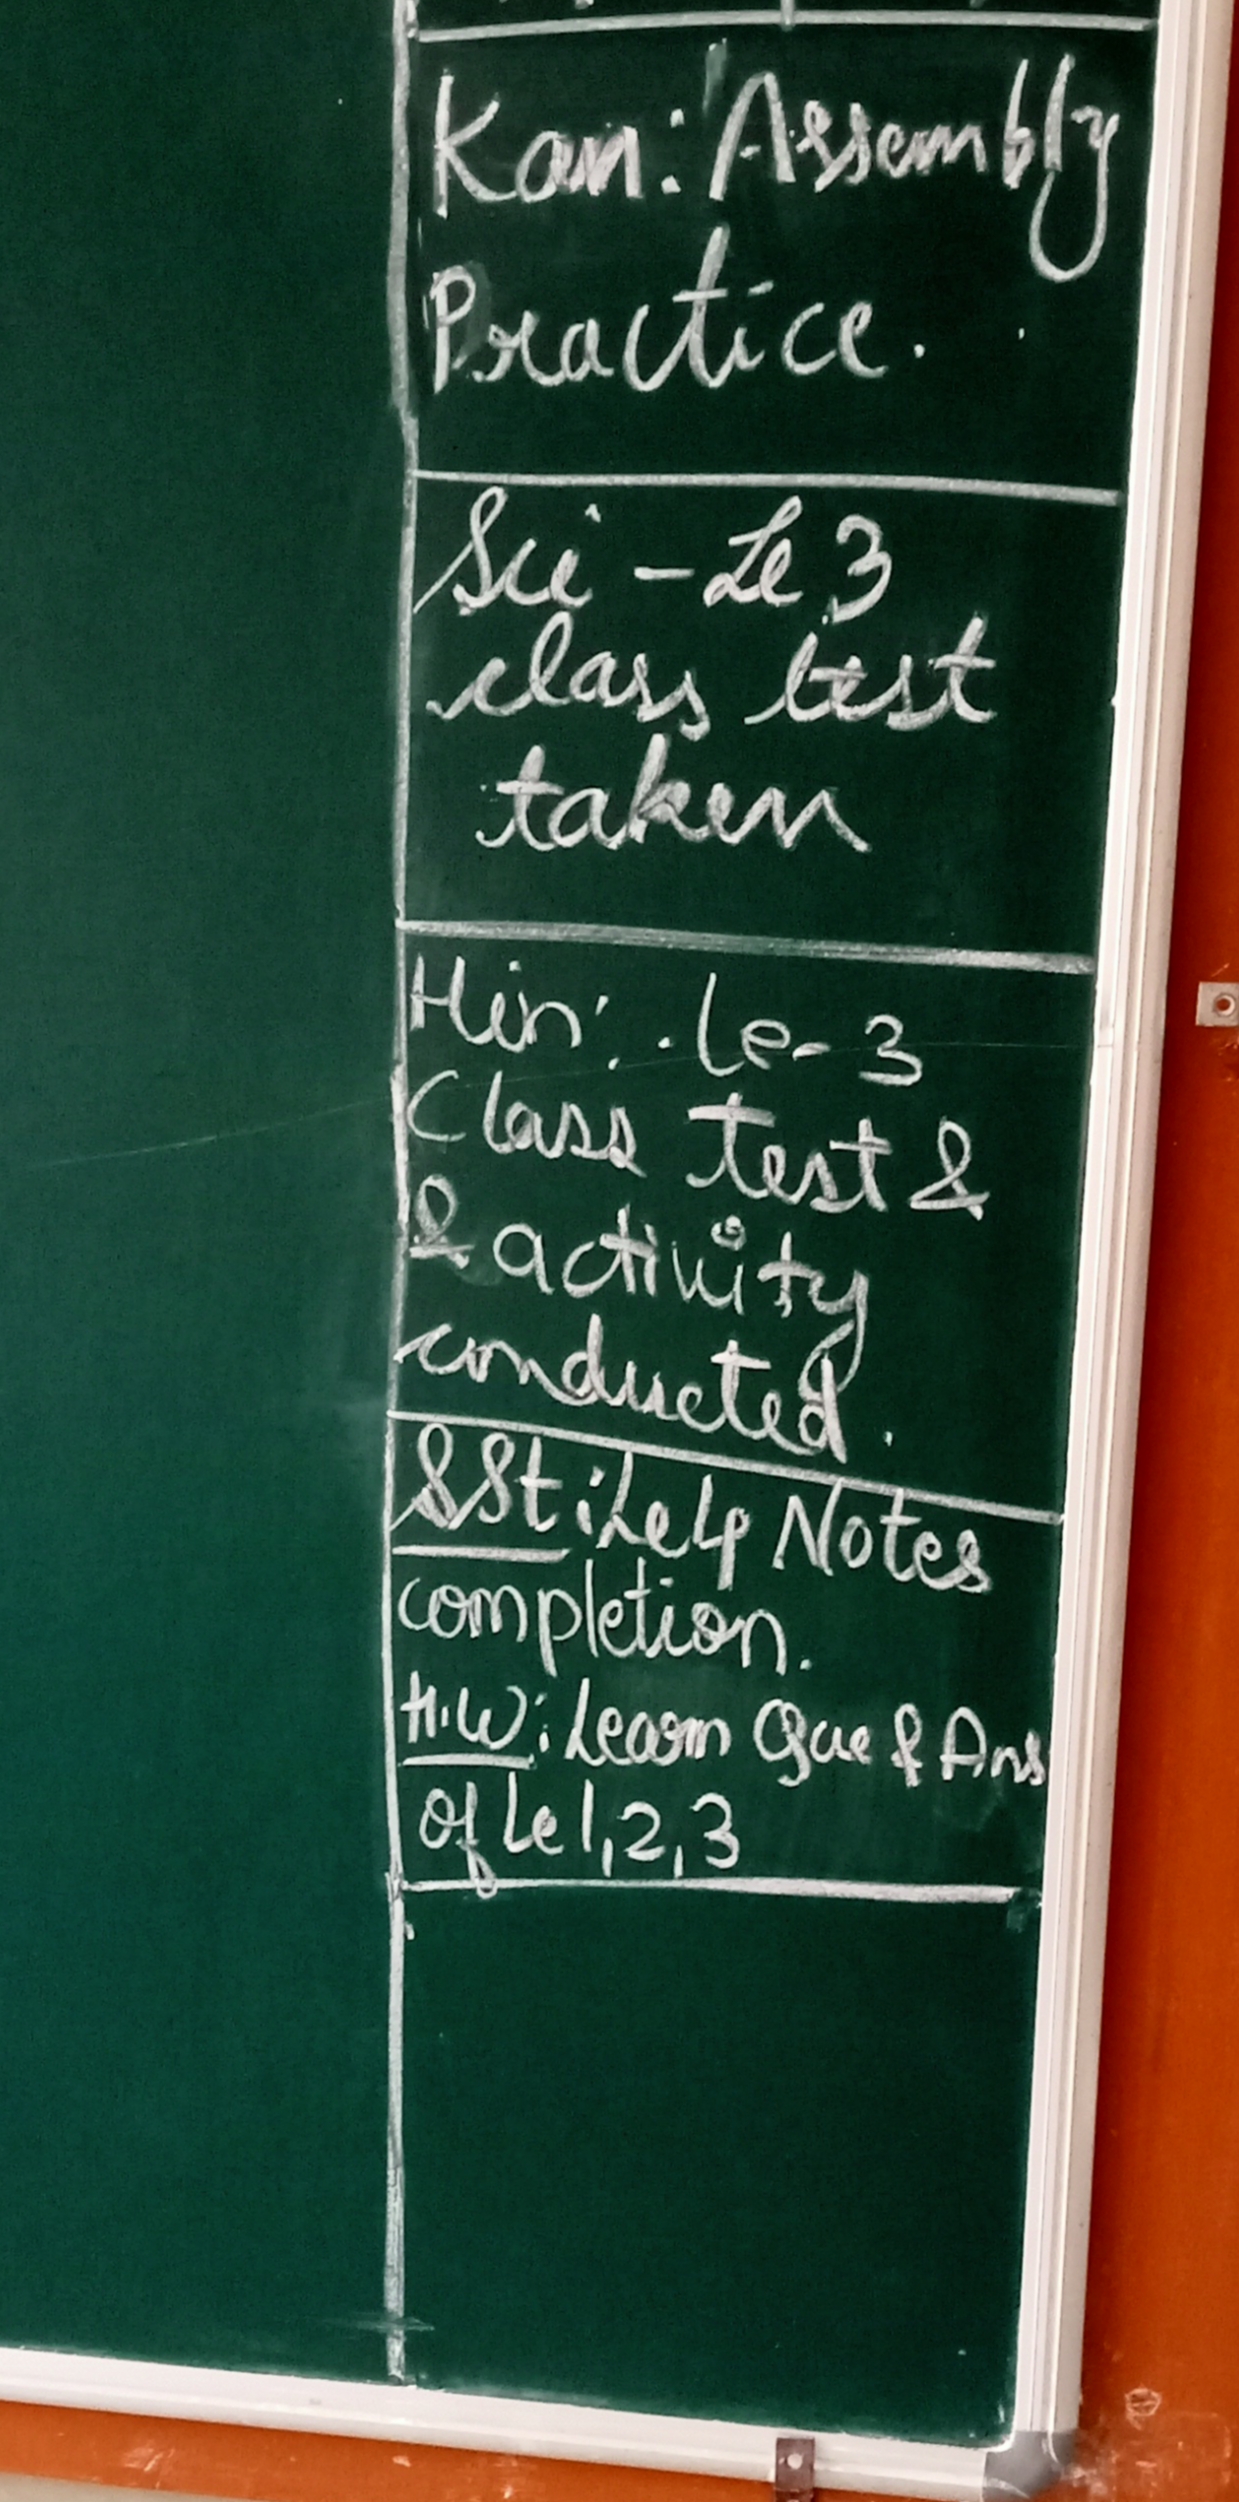 Kan: Assembly
Practice.
Sci - Le 3
class test
taken
Hin: Le- 3
Class test &
& activity
conducted.
SSt: Le 4 Notes
completion.
H.W: Learn Que & Ans
of Le 1, 2, 3